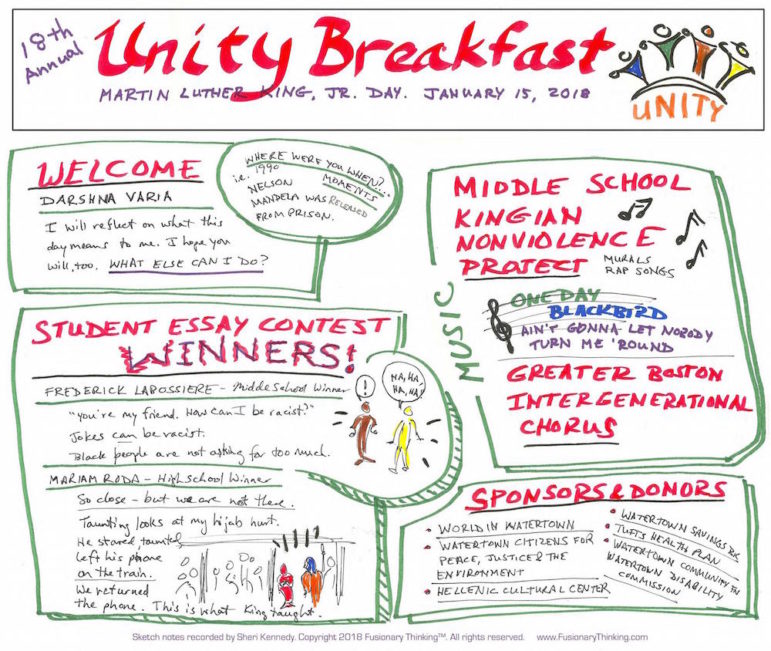 18th
Annual
Unity Breakfast
MARTIN LUTHER KING, JR. DAY. JANUARY 15, 2018
UNITY
WELCOME
DARSHNA VARIA
I will reflect on what this
day means to me. I hope you
will, too. WHAT ELSE CAN I DO?
WHERE WERE YOU WHEN?...
MOMENTS
i.e. 1990
NELSON
MANDELA WAS RELEASED
FROM PRISON.
STUDENT ESSAY CONTEST
WINNERS!
FREDERICK LABOSSIERE - Middle School Winner
"You're my friend. How can I be racist?"
Jokes can be racist.
Black people are not asking for too much.
!
HA, HA,
HA, HA!
MARIAM RODA - High School Winner
So close - but we are not there.
Taunting looks at my hijab hurt.
He stared
left his phone
on the train.
We returned
the phone. This is what King taught.
MUSIC
MIDDLE SCHOOL
KINGIAN
NONVIOLENCE
PROJECT
MURALS
RAP SONGS
ONE DAY
BLACKBIRD
AIN'T GONNA LET NOBODY
TURN ME 'ROUND
GREATER BOSTON
INTERGENERATIONAL
CHORUS
SPONSORS & DONORS
• WORLD IN WATERTOWN
• WATERTOWN CITIZENS FOR
PEACE, JUSTICE & THE
ENVIRONMENT
• HELLENIC CULTURAL CENTER
• WATERTOWN SAVINGS BK
• TUFTS HEALTH PLAN
• WATERTOWN COMMUNITY FN
WATERTOWN DISABILITY
COMMISSION
Sketch notes recorded by Sheri Kennedy. Copyright 2018 Fusionary Thinking™. All rights reserved. www.FusionaryThinking.com